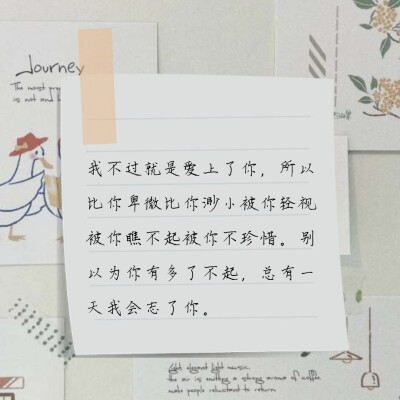 Journey
The most
is not and
我不过就是愛上了你，所以
比你卑微比你渺小被你轻视
被你瞧不起被你不珍惜。别
以为你有多了不起，总有一
天我会忘了你。
light music
the air is emitting a strong aroma of coffee
make people reluctant to return